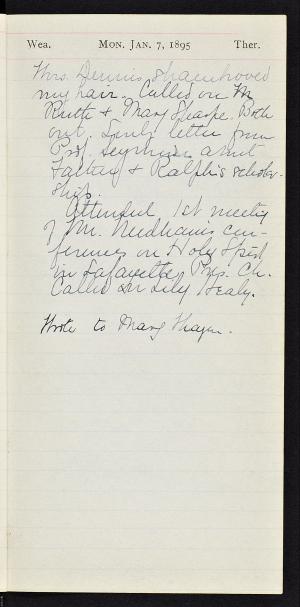 Wea. MON. JAN. 7, 1895 Ther.
Mrs. Dennis shampooed
my hair. Called on M
Ruth & Mary Sharpe. Both
out. letter from
Prof. Seymour about
& Ralph's scholar-
ships.
Attended 1st meeting
of Mr. Needham's con-
ference on Holy Spirit
in Lafayette Pres. Ch.
Called on Lily Healy.
Wrote to Mary Thayer.